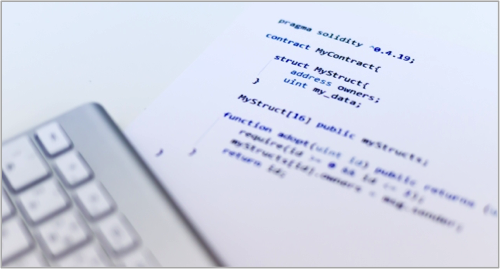 pragma solidity ^0.4.19;
contract MyContract{
struct MyStruct{
address owners;
uint my_data;
}
MyStruct[16] public myStructs;
function adopt(uint id) public returns (
require(id >= 0 && id <=
myStructs[id].owners = msg.sender;
return id;
}
}